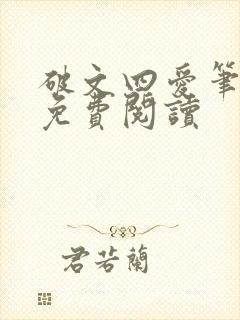 破文四愛筆
免費閱讀
君若蘭